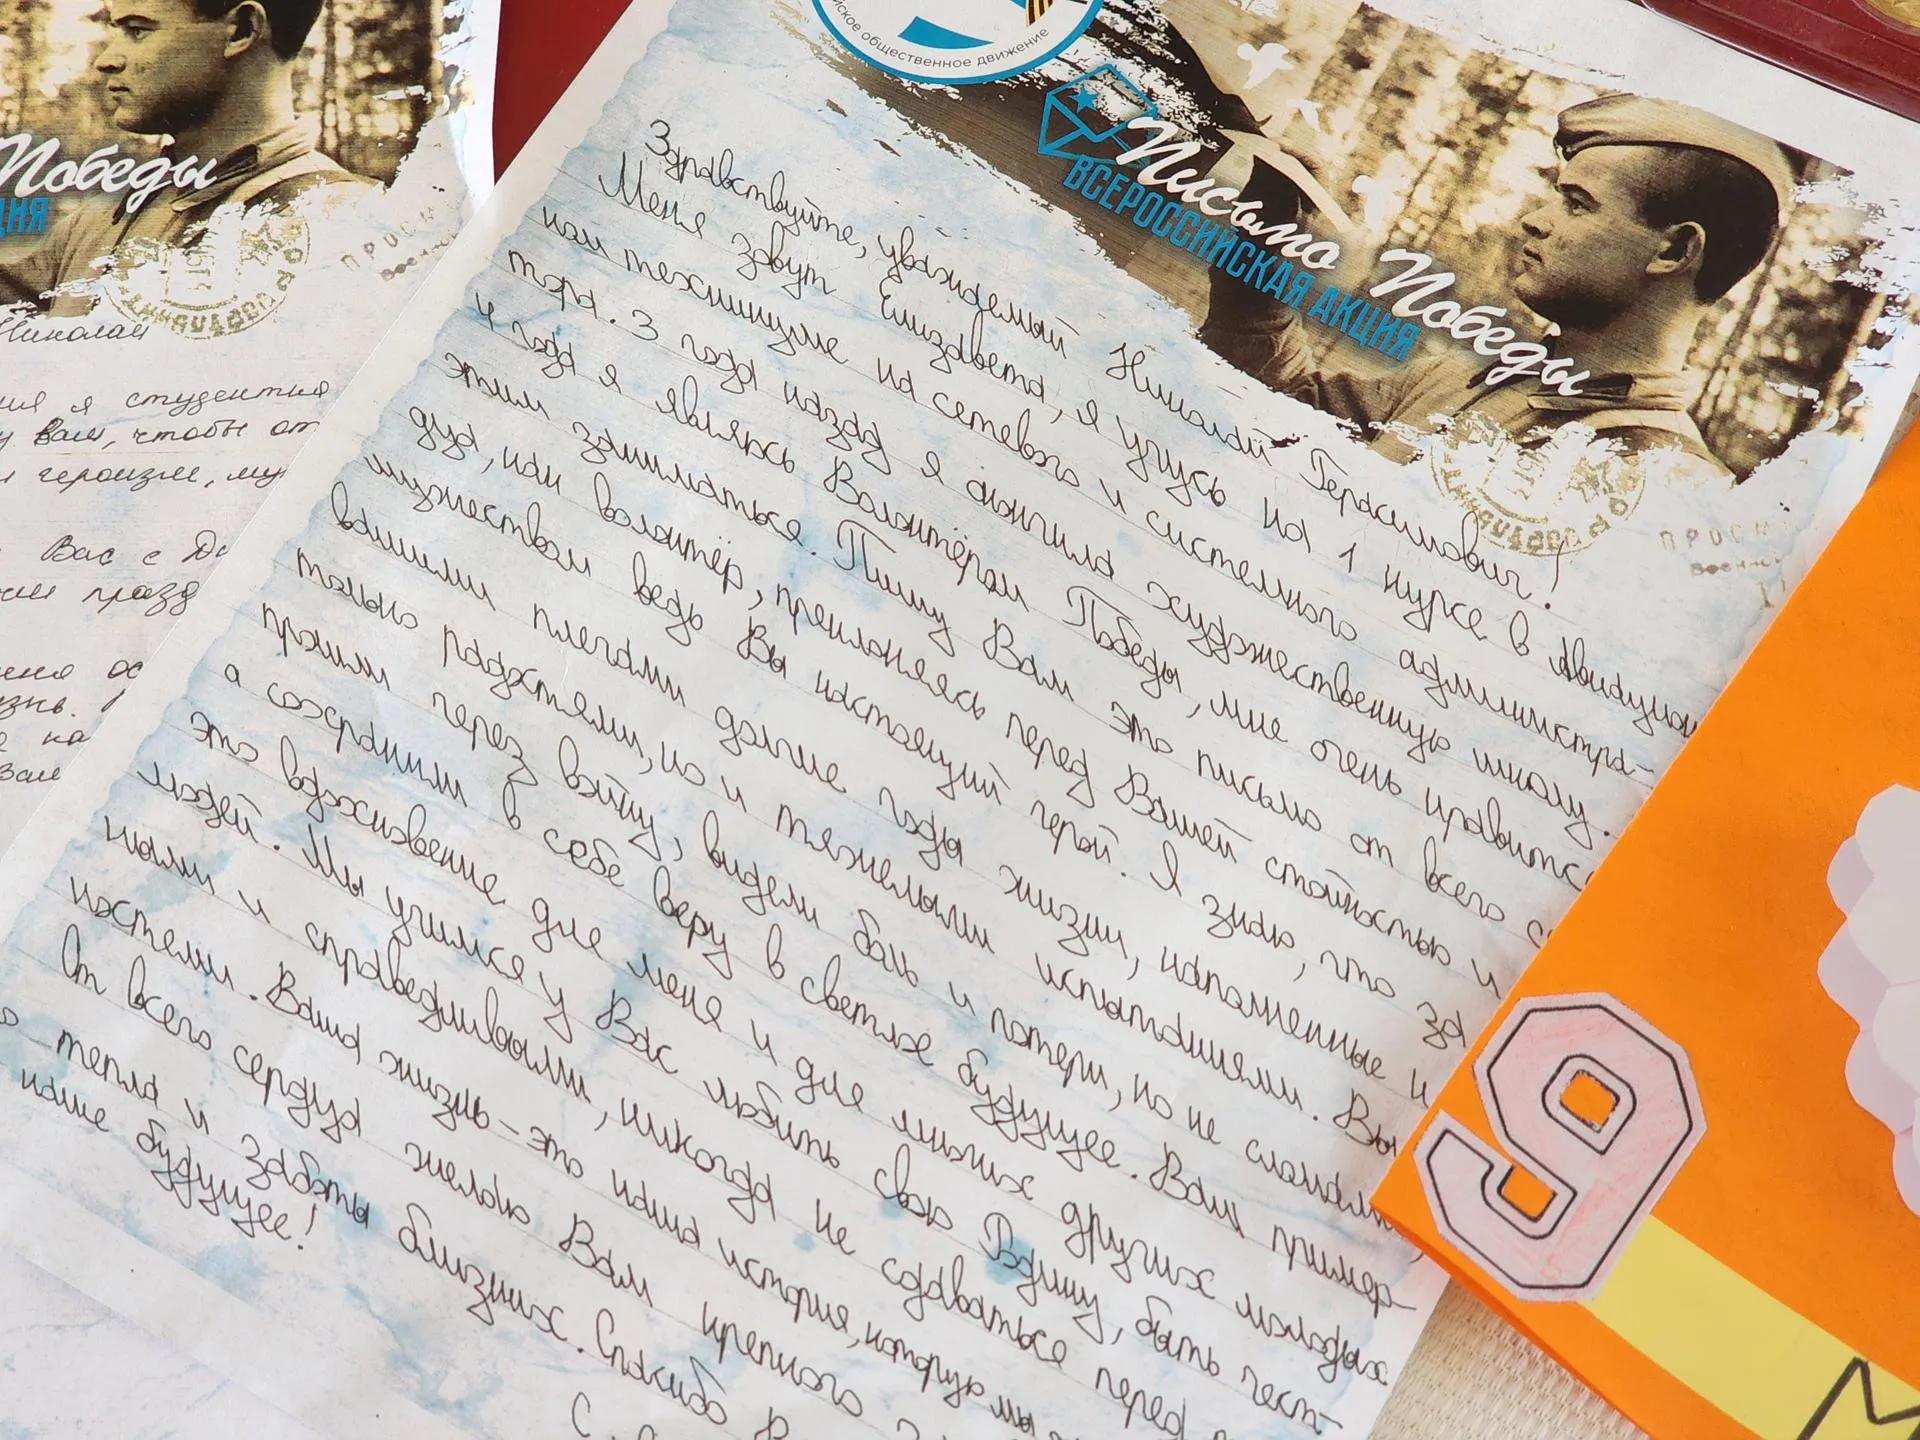 йское общественное движение
Письмо Победы
ВСЕРОССИЙСКАЯ АКЦИЯ
Здравствуйте, уважаемый Николай Герасимович!
Меня зовут Елизавета, я учусь на 1 курсе в Авиацион
ном техникуме на сетевого и системного администра-
тора. 3 года назад я окончила художественную школу.
4 года я являюсь Волонтёром Победы, мне очень нравится
этим заниматься. Пишу Вам это письмо от всего се
дца, как волонтёр, преклоняясь перед Вашей стойкостью и
мужеством ведь Вы настоящий герой. Я знаю, что за
вашими плечами долгие годы жизни, наполненные и
только радостями, но и тяжелыми испытаниями. Вы
прошли через войну, видели боль и потери, но не сломались,
а сохранили в себе веру в светлое будущее. Ваш пример-
это вдохновение для меня и для многих других молодых
людей. Мы учимся у Вас любить свою Родину, быть чест-
ными и справедливыми, никогда не сдаваться перед
ностями. Ваша жизнь-это наша история, которую мы
От всего сердца желаю Вам крепкого
тепла и заботы близких. Спасибо В
наше будущее!
С
Победы
ЦИЯ
Николай
я студентка
Вам, чтобы от
героизм, му
Вас с Д
празд
Вам
9
М